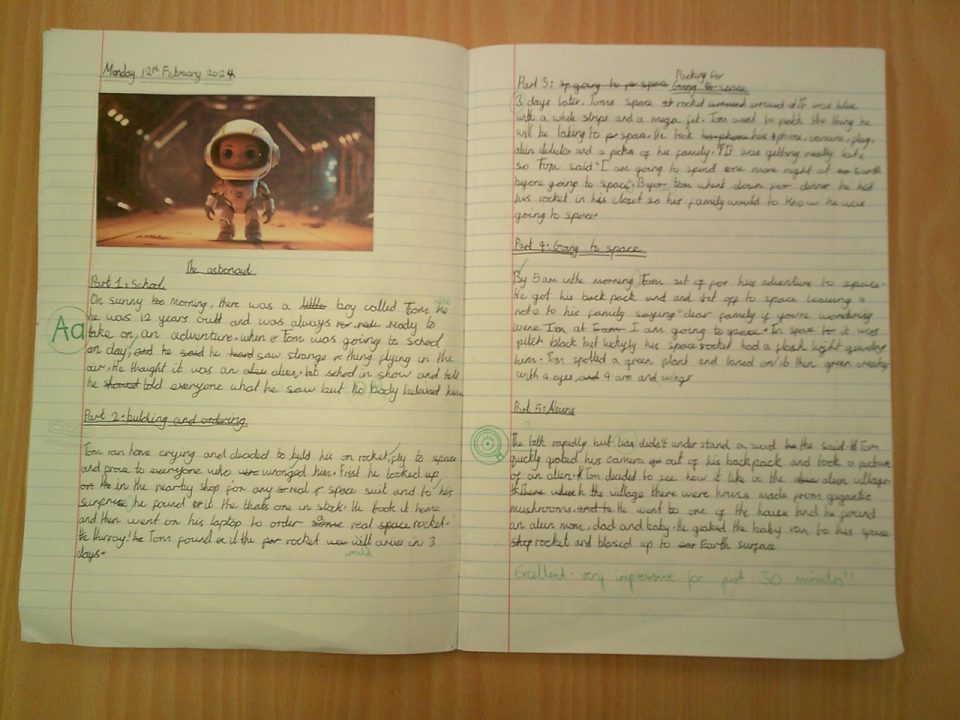 Monday 12th February 2024.
The astronaut
Part 1: School
On sunny morning, there was a little boy called Tom who he
he was 12 years and was always ready to
Aa
take on an adventure. when Tom was going to school
on day, and he said he heard saw strange thing flying in the
air. He thought it was an alien. in show and tell
he told everyone what he saw but no body beleived him
Part 2: building and ordering
Tom ran home crying and decided to build his on rocket, fly to space
and prove to everyone who wronged him. Frist he looked up
in the nearby shop for any real space suit and to his
surprise he found it the thats one in stock. He took it home
and then went on his laptop to order some real space rocket.
Hurray! Tom found out the rocket will arive in 3
could
days.
Packing for
Part 3: going to space Going to space
3 days later, Toms space rocket arrived it was blue
with a white strips and a mega jet. Tom went to pack the thing he
will be taking to space. He took his phone his phone, camera, flag,
alien detector and a picture of his family. It was getting really late
so Tom said "I am going to spend one more night at Earth
before going to space". Befor tom whent down for dinner he hid
his rocket in his closet so his family would to know he was
going to space.
Part 4: Going to space
By 5am in the morning, Tom set of for his adventure to space.
He got his back pack and set off to space leaving a
note to his family saying "dear family if you're wondering
were I'm at I am going to space. In space it was
pitch black but luckyly his space rocket had a flash light guiding
him. Tom spotted a green plant and landed on it then green
with 2 eyes and 4 arm and wings
Part 5: Aliens
The talk rapidly but didn't under stand a word he said. Tom
quickly grabed his camera out of his backpack and took a picture
of an alien. Tom decided to see how it like in the alien village.
There in the village there were houses made from gigantic
mushrooms. He went to one of the house and he found
an alien mom, dad and baby. He grabed the baby ran to his space
ship rocket and blased up to Earth surface
Excellent - very impressive for just 30 minutes!!